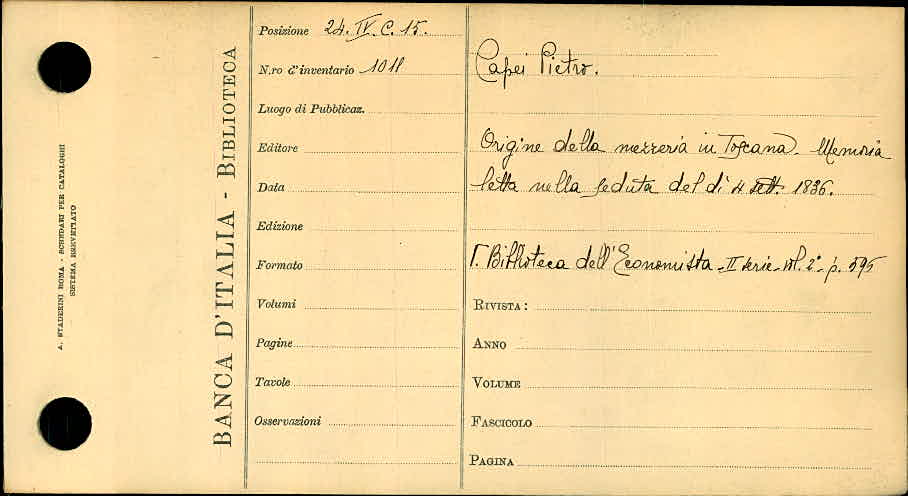 A. STADERINI ROMA - SCHEDARI PER CATALOGHI
SISTEMA BREVETTATO
BANCA D'ITALIA - BIBLIOTECA
Posizione 24. IV. C. 15.
N.ro d'inventario 1011
Luogo di Pubblicaz.
Editore
Data
Edizione
Formato
Volumi
Pagine
Tavole
Osservazioni
Capei Pietro.
Origine della mezzeria in Toscana. Memoria
letta nella seduta del dì 4 sett. 1836.
Biblioteca dell'Economista - II serie - vol. 2° - p. 595
RIVISTA:
ANNO
VOLUME
FASCICOLO
PAGINA